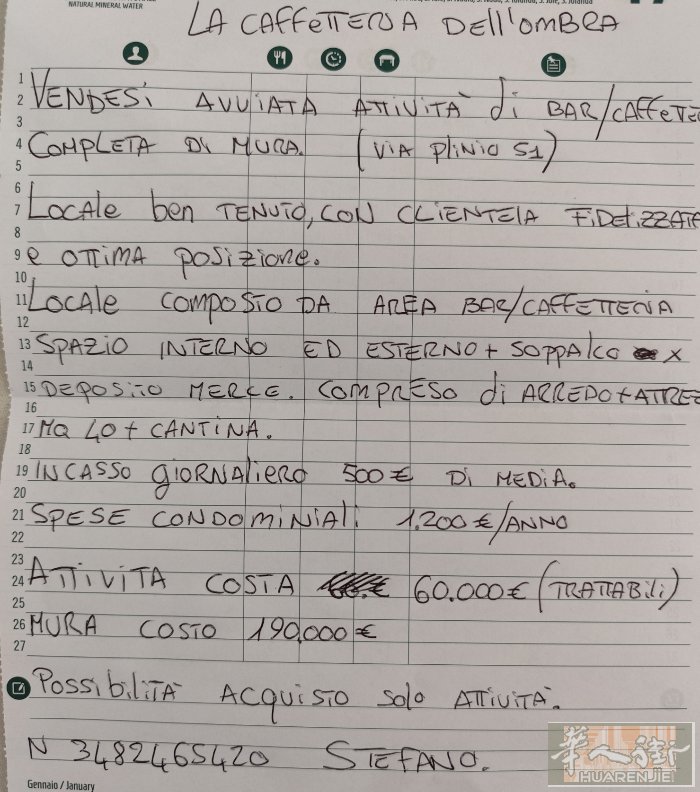 NATURAL MINERAL WATER
LA CAFFETTERIA DELL'OMBRA
1
2 VENDESI AVVIATA ATTIVITÀ di BAR/CAFFETTE
3
4 COMPLETA DI MURA. (VIA PLINIO 51)
5
6
7 LOCALE ben TENUTO, CON CLIENTELA FIDELIZZATA
8
9 e OTTIMA POSIZIONE.
10
11 LOCALE COMPOSTO DA AREA BAR/CAFFETTERIA
12
13 SPAZIO INTERNO ED ESTERNO + SOPPALCO X
14
15 DEPOSITO MERCE. COMPRESO di ARREDO + ATREZ
16
17 MQ 40 + CANTINA.
18
19 INCASSO giORNALIERO 500€ DI MEDIA.
20
21 SPESE CONDOMINIALI 1.200€/ANNO
22
23
24 ATTIVITÀ COSTA 60.000€ (TRATTABILI)
25
26 MURA COSTO 190.000€
27
POSSIBILITÀ ACQUISTO SOLO ATTIVITÀ.
N 3482465420 STEFANO.
Gennaio / January
华人街
HUARENJIE